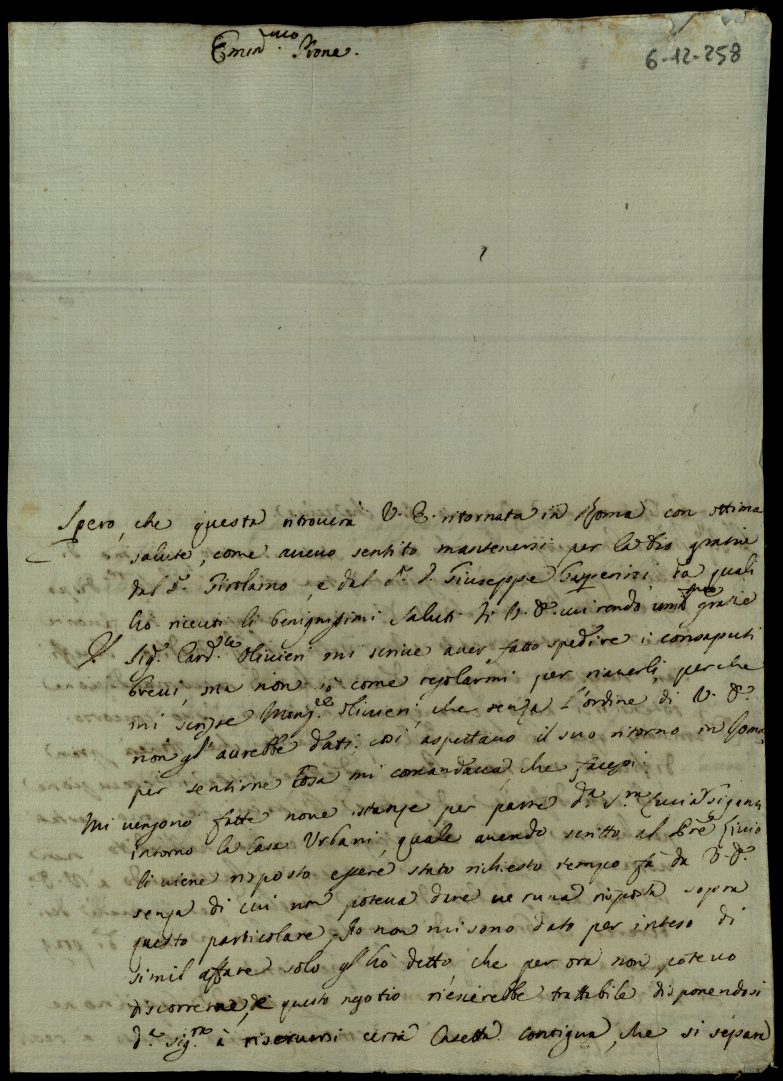 Emin.mo Prone.
6-12-258
Spero, che questa ritrouerà V. E. ritornata in Roma con ottima
salute, come aueuo sentito mantenersi per la Dio gratia
dal S.r Girolamo, e dal S.r D. Giuseppe Gasperini, da quali
hò riceuti li benignissimi saluti di V. E. cui rendo um.me grazie
Il Sig.r Card.le Oliuieri mi scriue auer fatto spedire i consaputi
breui, ma non sò come regolarmi per riauerli, perche
mi scrisse Mons.re Oliuieri, che senza l'ordine di V. E.
non gl'aurebbe dati. così aspettauo il suo ritorno in Roma
per sentirne cosa mi comandaua, che facessi.
Mi uengono fatte noue istanze per parte d.a S.ra Lucia
intorno la Casa Urbani, quale auendo scritto al Pre. Liuio
li uiene risposto essere stato richiesto tempo fà da V. E.
senza di cui non poteua dare ueruna risposta sopra
questo particolare. Io non mi sono dato per inteso di
simil affare solo gl'hò detto, che per ora non poteuo
discorrerne, e questo negotio riescirebbe trattabile disponendosi
d.a Sig.ra à riseruarsi certa Casetta contigua, che si separa